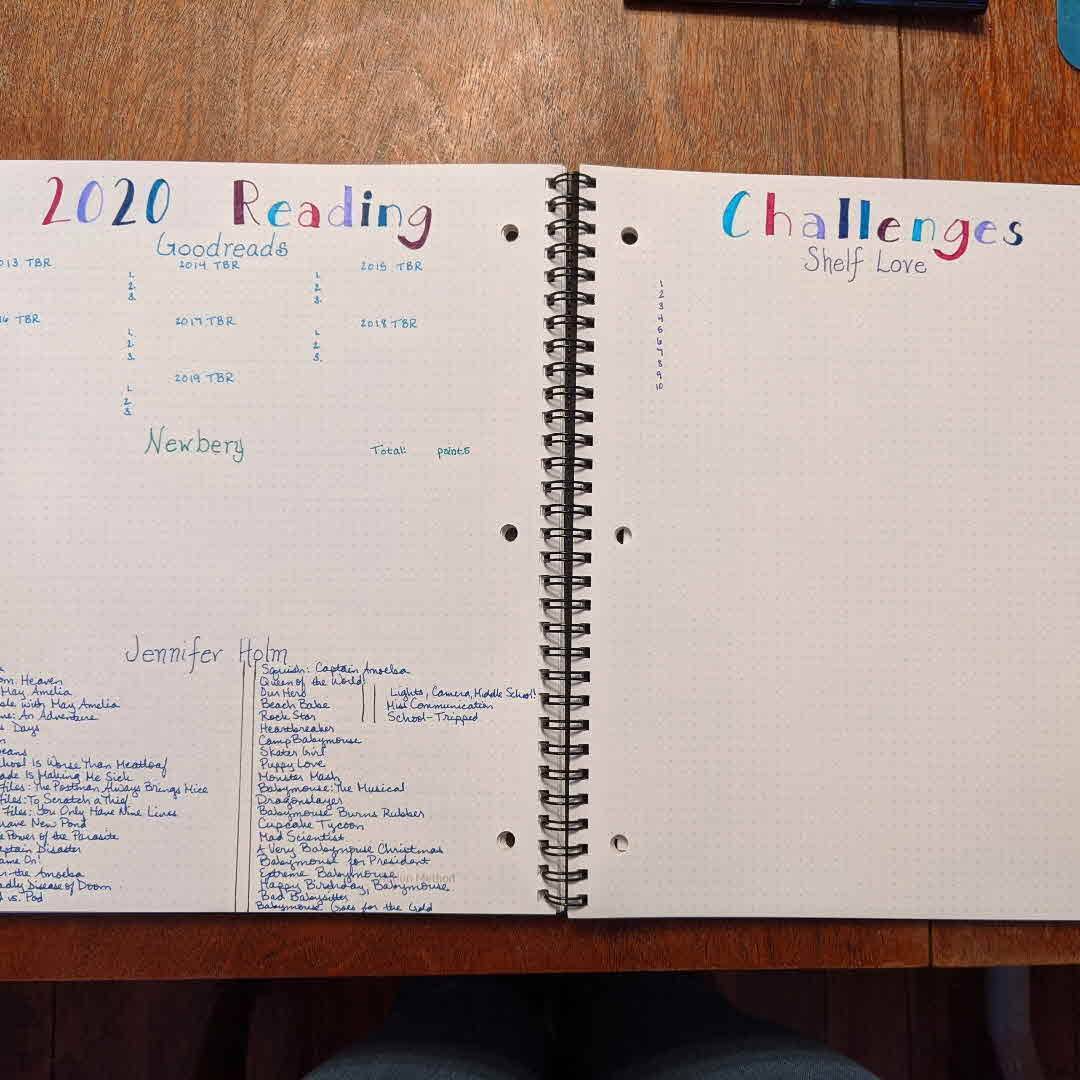 2020 Reading
Goodreads
013 TBR 2014 TBR 2015 TBR
1. 1.
2. 2.
3. 3.
16 TBR 2017 TBR 2018 TBR
1. 1.
2. 2.
3. 3.
2019 TBR
1.
2.
3.
Newbery
Total: points
Jennifer Holm
om Heaven
May Amelia
ble with May Amelia
me: An Adventure
s Days
eans
chool Is Worse Than Meatloaf
ade Is Making Me Sick
Files: The Postman Always Brings Mice
Files: To Scratch a Thief
Files: You Only Have Nine Lives
rave New Pond
e Power of the Parasite
ptain Disaster
ame On!
the Amoeba
adly Disease of Doom
d vs. Pod
Squish: Captain Amoeba
Queen of the World!
Our Hero
Beach Babe
Rock Star
Heartbreaker
Camp Babymouse
Skater Girl
Puppy Love
Monster Mash
Babymouse: The Musical
Dragonslayer
Babymouse Burns Rubber
Cupcake Tycoon
Mad Scientist
A Very Babymouse Christmas
Babymouse for President
Extreme Babymouse
Happy Birthday, Babymouse
Bad Babysitter
Babymouse Goes for the Gold
Lights, Camera, Middle School!
Miss Communication
School-Tripped
Method
Challenges
Shelf Love
1
2
3
4
5
6
7
8
9
10